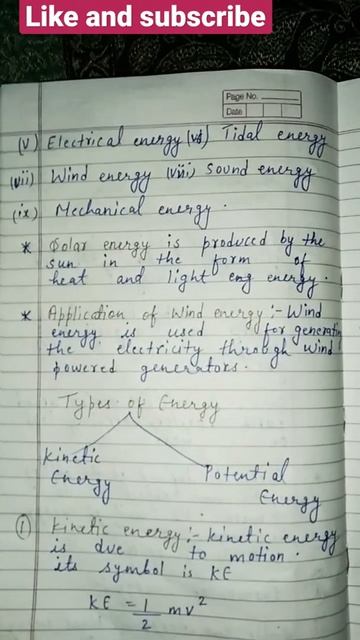 Like and subscribe
Page No.
Date
(v) Electrical energy (vi) Tidal energy
(vii) Wind energy (viii) Sound energy
(ix) Mechanical energy.
* Solar energy is produced by the
sun in the form of
heat and light eng energy.
* Application of Wind energy :- Wind
energy is used for generating
the electricity through wind
powered generators.
Types of Energy
Kinetic
Energy
Potential
Energy
① Kinetic energy :- kinetic energy
is due to motion.
its symbol is KE
KE = 1/2 mv²